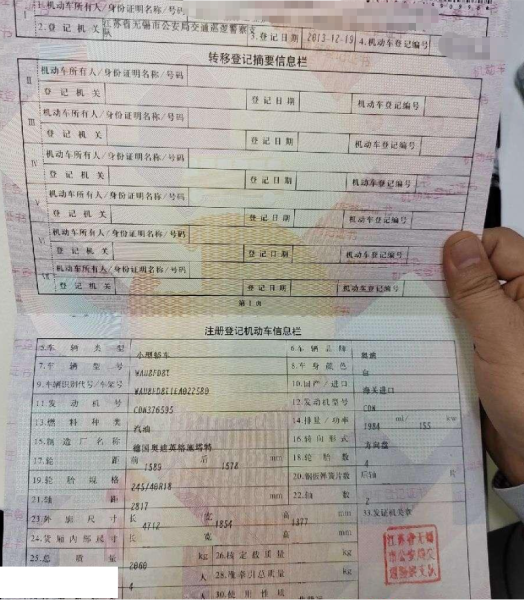 1.机动车所有人/身份证明名称/号码
2.登记机关 江苏省无锡市公安局交通巡逻警察支队 3.登记日期 2013-12-19 4.机动车登记编号
转移登记摘要信息栏
Ⅱ 机动车所有人/身份证明名称/号码
登记机关 登记日期 机动车登记编号
Ⅲ 机动车所有人/身份证明名称/号码
登记机关 登记日期 机动车登记编号
Ⅳ 机动车所有人/身份证明名称/号码
登记机关 登记日期 机动车登记编号
Ⅴ 机动车所有人/身份证明名称/号码
登记机关 登记日期 机动车登记编号
Ⅵ 机动车所有人/身份证明名称/号码
登记机关 登记日期 机动车登记编号
Ⅶ 机动车所有人/身份证明名称/号码
登记机关 登记日期 机动车登记编号
第1页
注册登记机动车信息栏
5.车辆类型 小型轿车 6.车辆品牌 奥迪
7.车辆型号 8.车身颜色 白
9.车辆识别代号/车架号 10.国产/进口 海关进口
11.发动机号 CDN376595 12.发动机型号 CDN
13.燃料种类 汽油 14.排量/功率 1984 ml/ 155 kw
15.制造厂名称 德国奥迪英格施塔特 16.转向形式 方向盘
17.轮距 前 1589 后 1576 mm 18.轮胎数 4
19.轮胎规格 245/40R18 20.钢板弹簧片数 后轴 片
21.轴距 2817 mm 22.轴数 2
23.外廓尺寸 长 4712 宽 1854 高 1377 mm 33.发证机关章
24.货厢内部尺寸 长 宽 高 mm
25.总质量 2060 kg 26.核定载质量 kg
4 人 28.准牵引总质量 kg
30.使用性质